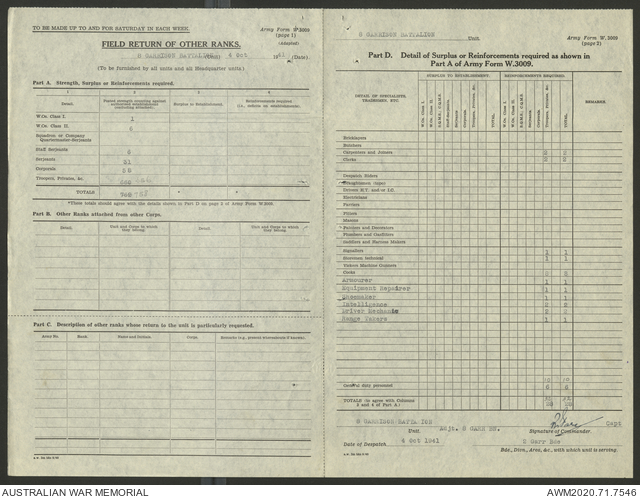 TO BE MADE UP TO AND FOR SATURDAY IN EACH WEEK.
Army Form W.3009
(page 1)
(Adapted)
FIELD RETURN OF OTHER RANKS.
8 GARRISON BATTALION (Unit) 4 Oct 1941 (Date)
(To be furnished by all units and all Headquarter units)
Part A. Strength, Surplus or Reinforcements required.
1 2 3 4
Detail.
Surplus
Reinforcements required
W.Os. Class I. 1
W.Os. Class II. 6
Squadron or Company
Quartermaster-Serjeants
Staff Serjeants 6
Serjeants 31
Corporals
Troopers, Privates, &c.
TOTALS
*These totals should agree with the details shown in Part D on page 2 of Army Form W.3009.
Part B. Other Ranks attached from other Corps.
Detail. Unit and Corps to which they belong. Detail. Unit and Corps to which they belong.
Part C. Description of other ranks whose return to the unit is particularly requested.
Army No. Rank. Name and Initials. Corps. Remarks (e.g., present whereabouts if known).
8 GARRISON BATTALION Unit.
Army Form W.3009
(page 2)
Part D. Detail of Surplus or Reinforcements required as shown in
Part A of Army Form W.3009.
DETAIL OF SPECIALISTS, TRADESMEN, ETC.
SURPLUS TO ESTABLISHMENT.
REINFORCEMENTS REQUIRED.
REMARKS
W.Os. Class I.
W.Os. Class II.
Staff-Serjeants.
Serjeants.
Corporals.
Troopers, Privates, &c.
TOTAL.
Bricklayers
Butchers
Carpenters and Joiners 2 2
Clerks 2 2
Despatch Riders
Draughtsmen (topo)
Drivers H.T. and/or I.C.
Electricians
Farriers
Fitters
Masons
Painters and Decorators
Plumbers and Gasfitters
Saddlers and Harness Makers
Signallers 1 1
Storemen technical 1 1
Vickers Machine Gunners
Cooks
Armourer 1 1
Equipment Repairer 1 1
Shoemaker 1 1
Intelligence 2 2
Driver Mechanic 2 2
Range Takers 1 1
General duty personnel
TOTALS (to agree with Columns
3 and 4 of Part A.)
8 GARRISON BATTALION Unit.
Adjt. 8 GARR BN.
Capt
Signature of Commander.
Date of Despatch 4 Oct 1941
Bde., Divn., Area, &c., with which unit is serving.
AUSTRALIAN WAR MEMORIAL
AWM2020.71.7546